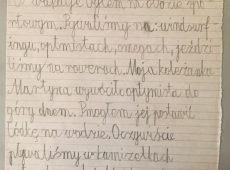 w wakacje byłem na obozie spor
towym. Pływaliśmy na: windsurf
ingu, optymistach, omegach, jeździ
liśmy na rowerach. Moja koleżanka
Martyna wywróciła optymista do
góry dnem. Pomogłem jej postawić
łódkę na wodzie. Oczywiście
pływaliśmy w kamizelkach